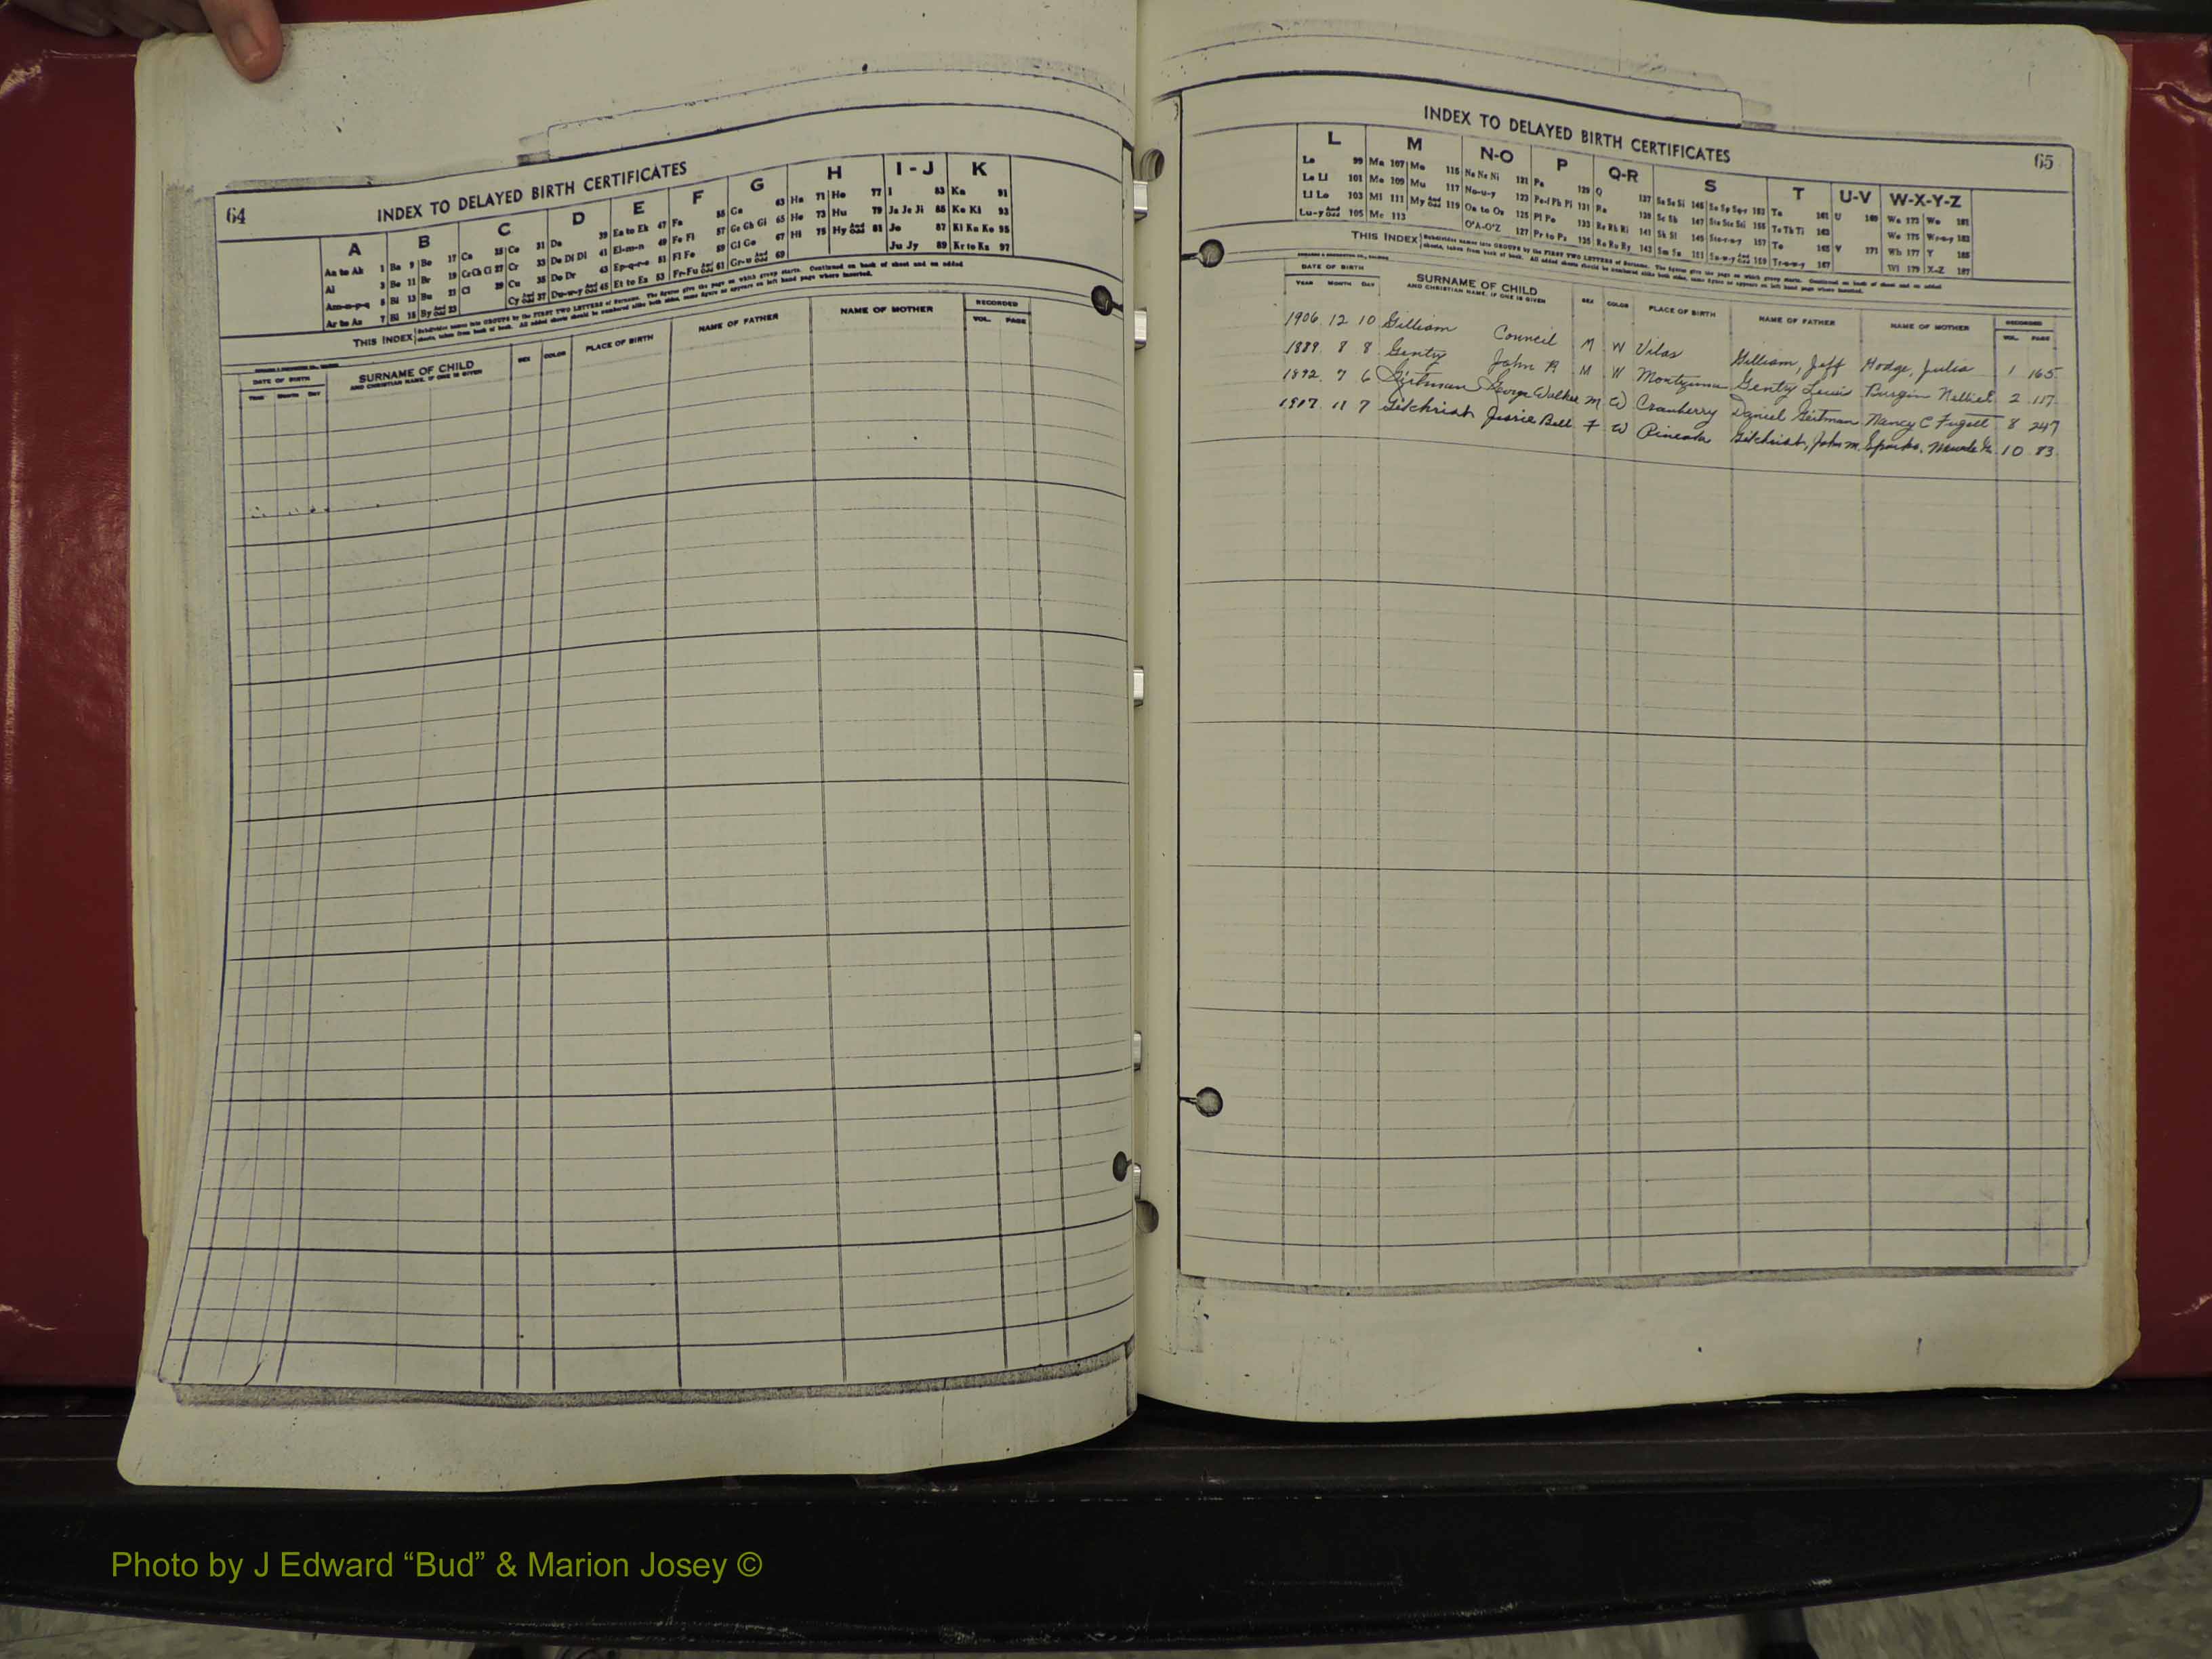 64
INDEX TO DELAYED BIRTH CERTIFICATES
A B C D E F G H I - J K
Aa to Ak 1 Ba 9 Bo 17 Ca 25 Co 31 Da 39 Ea to Ek 47 Fa 55 Ga 63 Ha 71 Ho 77 I 83 Ka 91
Al 3 Be 11 Br 19 Ce Ch Ci 27 Cr 33 De Di Dl 41 El-m-n 49 Fe Fi 57 Ge Gh Gi 65 He 73 Hu 79 Ja Je Ji 85 Ke Ki 93
Am-n-p-q 5 Bi 13 Bu 21 Cl 29 Cu 35 Do Dr 43 Ep-q-r-s 51 Fl Fo 59 Gl Go 67 Hi 75 Hy And Odd 81 Jo 87 Kl Kn Ko 95
Ar to Az 7 Bl 15 By And Odd 23 Cy And Odd 37 Du-w-y And Odd 45 Et to Ez 53 Fr-Fu And Odd 61 Gr-u And Odd 69 Ju Jy 89 Kr to Kz 97
THIS INDEX Subdivides names into GROUPS by the FIRST TWO LETTERS of Surname. The figures give the page on which group starts. Continued on back of sheet and on added
sheets, taken from back of book. All added sheets should be numbered alike both sides, same figure as appears on left hand page where inserted.
DATE OF BIRTH SURNAME OF CHILD SEX COLOR PLACE OF BIRTH NAME OF FATHER NAME OF MOTHER RECORDED
YEAR MONTH DAY AND CHRISTIAN NAME, IF ONE IS GIVEN VOL. PAGE
INDEX TO DELAYED BIRTH CERTIFICATES
65
L M N-O P Q-R S T U-V W-X-Y-Z
La 99 Ma 107 Mo 115 Na Ne Ni 121 Pa 129 Q 137 Sa Se Si 145 So Sp Sq-r 153 Ta 161 U 169 Wa 173 Wo 181
Le Li 101 Me 109 Mu 117 No-u-y 123 Pe-f Ph Pi 131 Ra 139 Sc Sh 147 Sta Ste Sti 155 Te Th Ti 163 We 175 Wr-u-y 183
Ll Lo 103 Mi 111 My And Odd 119 Oa to Oz 125 Pl Po 133 Re Rh Ri 141 Sk Sl 149 Sto-r-u-y 157 To 165 V 171 Wh 177 Y 185
Lu-y And Odd 105 Mc 113 O'A-O'Z 127 Pr to Pz 135 Ro Ru Ry 143 Sm Sn 151 Su-w-y And Odd 159 Tr-u-w-y 167 Wi 179 X-Z 187
THIS INDEX Subdivides names into GROUPS by the FIRST TWO LETTERS of Surname. The figures give the page on which group starts. Continued on back of sheet and on added
sheets, taken from back of book. All added sheets should be numbered alike both sides, same figure as appears on left hand page where inserted.
DATE OF BIRTH SURNAME OF CHILD SEX COLOR PLACE OF BIRTH NAME OF FATHER NAME OF MOTHER RECORDED
YEAR MONTH DAY AND CHRISTIAN NAME, IF ONE IS GIVEN VOL. PAGE
1906 12 10 Gilliam Council M W Vilas Gilliam, Jeff Hodge, Julia 1 165
1889 8 8 Gentry John R M W Montezuma Gentry Lewis Burgin Nellie 2 117
1892 7 6 Geitman George Walker M W Cranberry Daniel Geitman Nancy C Fugett 8 247
1917 11 7 Gilchrist Jessie Bell F W Pineola Gilchrist, John M. Sparks, 10 83
Photo by J Edward “Bud” & Marion Josey ©